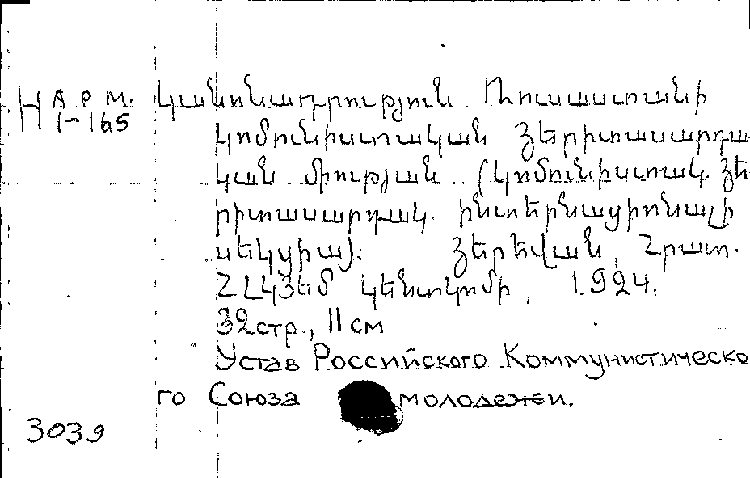 Н А.Р.М. Կանոնադրություն Ռուսաստանի
1-165 կոմունիստական յերիտասարդա
կան միության (կոմունիստակ. յե
րիտասարդակ. ինտերնացիոնալի
սեկցիա). Յերեվան, Հրատ.
ՀԼԿՅԵՄ կենտկոմի, 1924.
32стр., 11см
Устав Российского Коммунистическо
го Союза молодежи.
3039